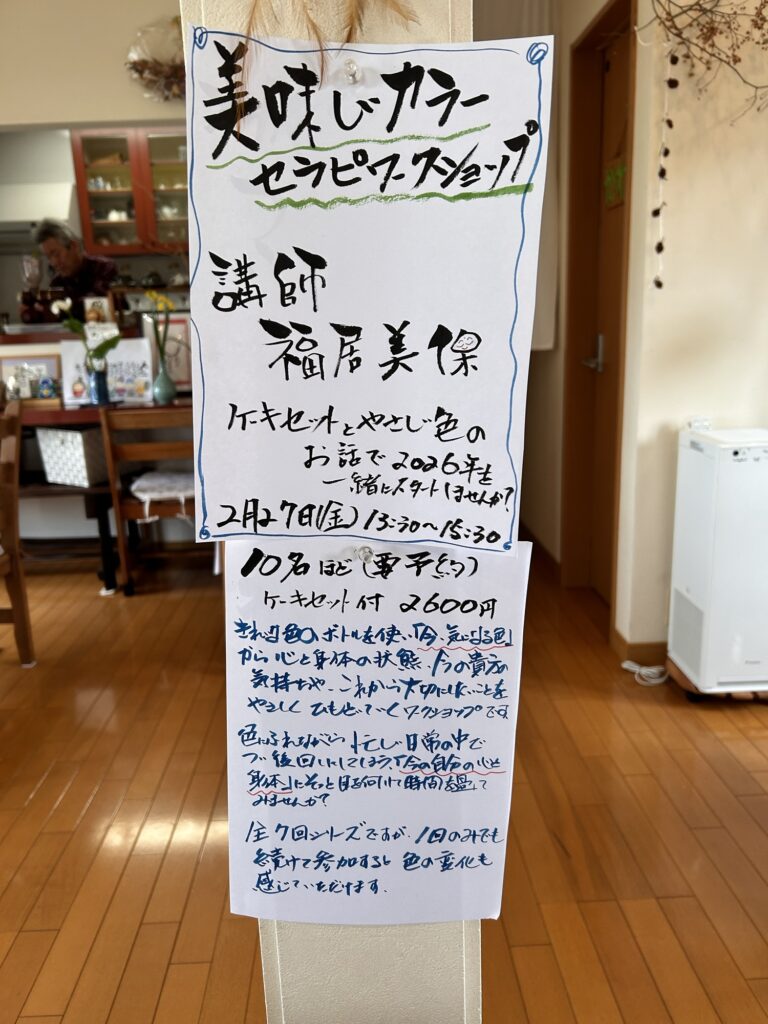 美味しいカラー
セラピーワークショップ
講師
福居美保
ケーキセットとやさしい色の
お話で2026年を
一緒にスタートしませんか?
2月27日(金) 13:30〜15:30
10名ほど(要予約)
ケーキセット付 2600円
きれいな色のボトルを使い、「今、気になる色」
から心と身体の状態、今の貴方の
気持ちや、これから大切にしたいことを
やさしくひもどいていくワークショップです。
色にふれながら忙しい日常の中で
つい後回しにしてしまう、「今の自分の心と
身体」にそっと目を向けて時間を
みませんか?
全7回シリーズですが、1回のみでも
続けて参加すると色の変化も
感じていただけます。